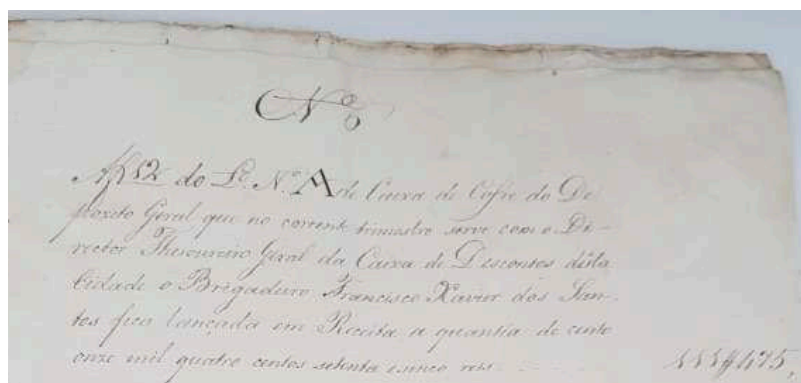 Nº
Af 12 do Lº Nº A de Caixa do Cofre do De-
pozito Geral que no corrente trimestre serve com o Di-
rector Thesoureiro Geral da Caixa de Descontos désta
Cidade o Brigadeiro Francisco Xavier dos San-
tos fica lançada em Receita a quantia de cento
onze mil quatro centos setenta e sinco reis
111$475,